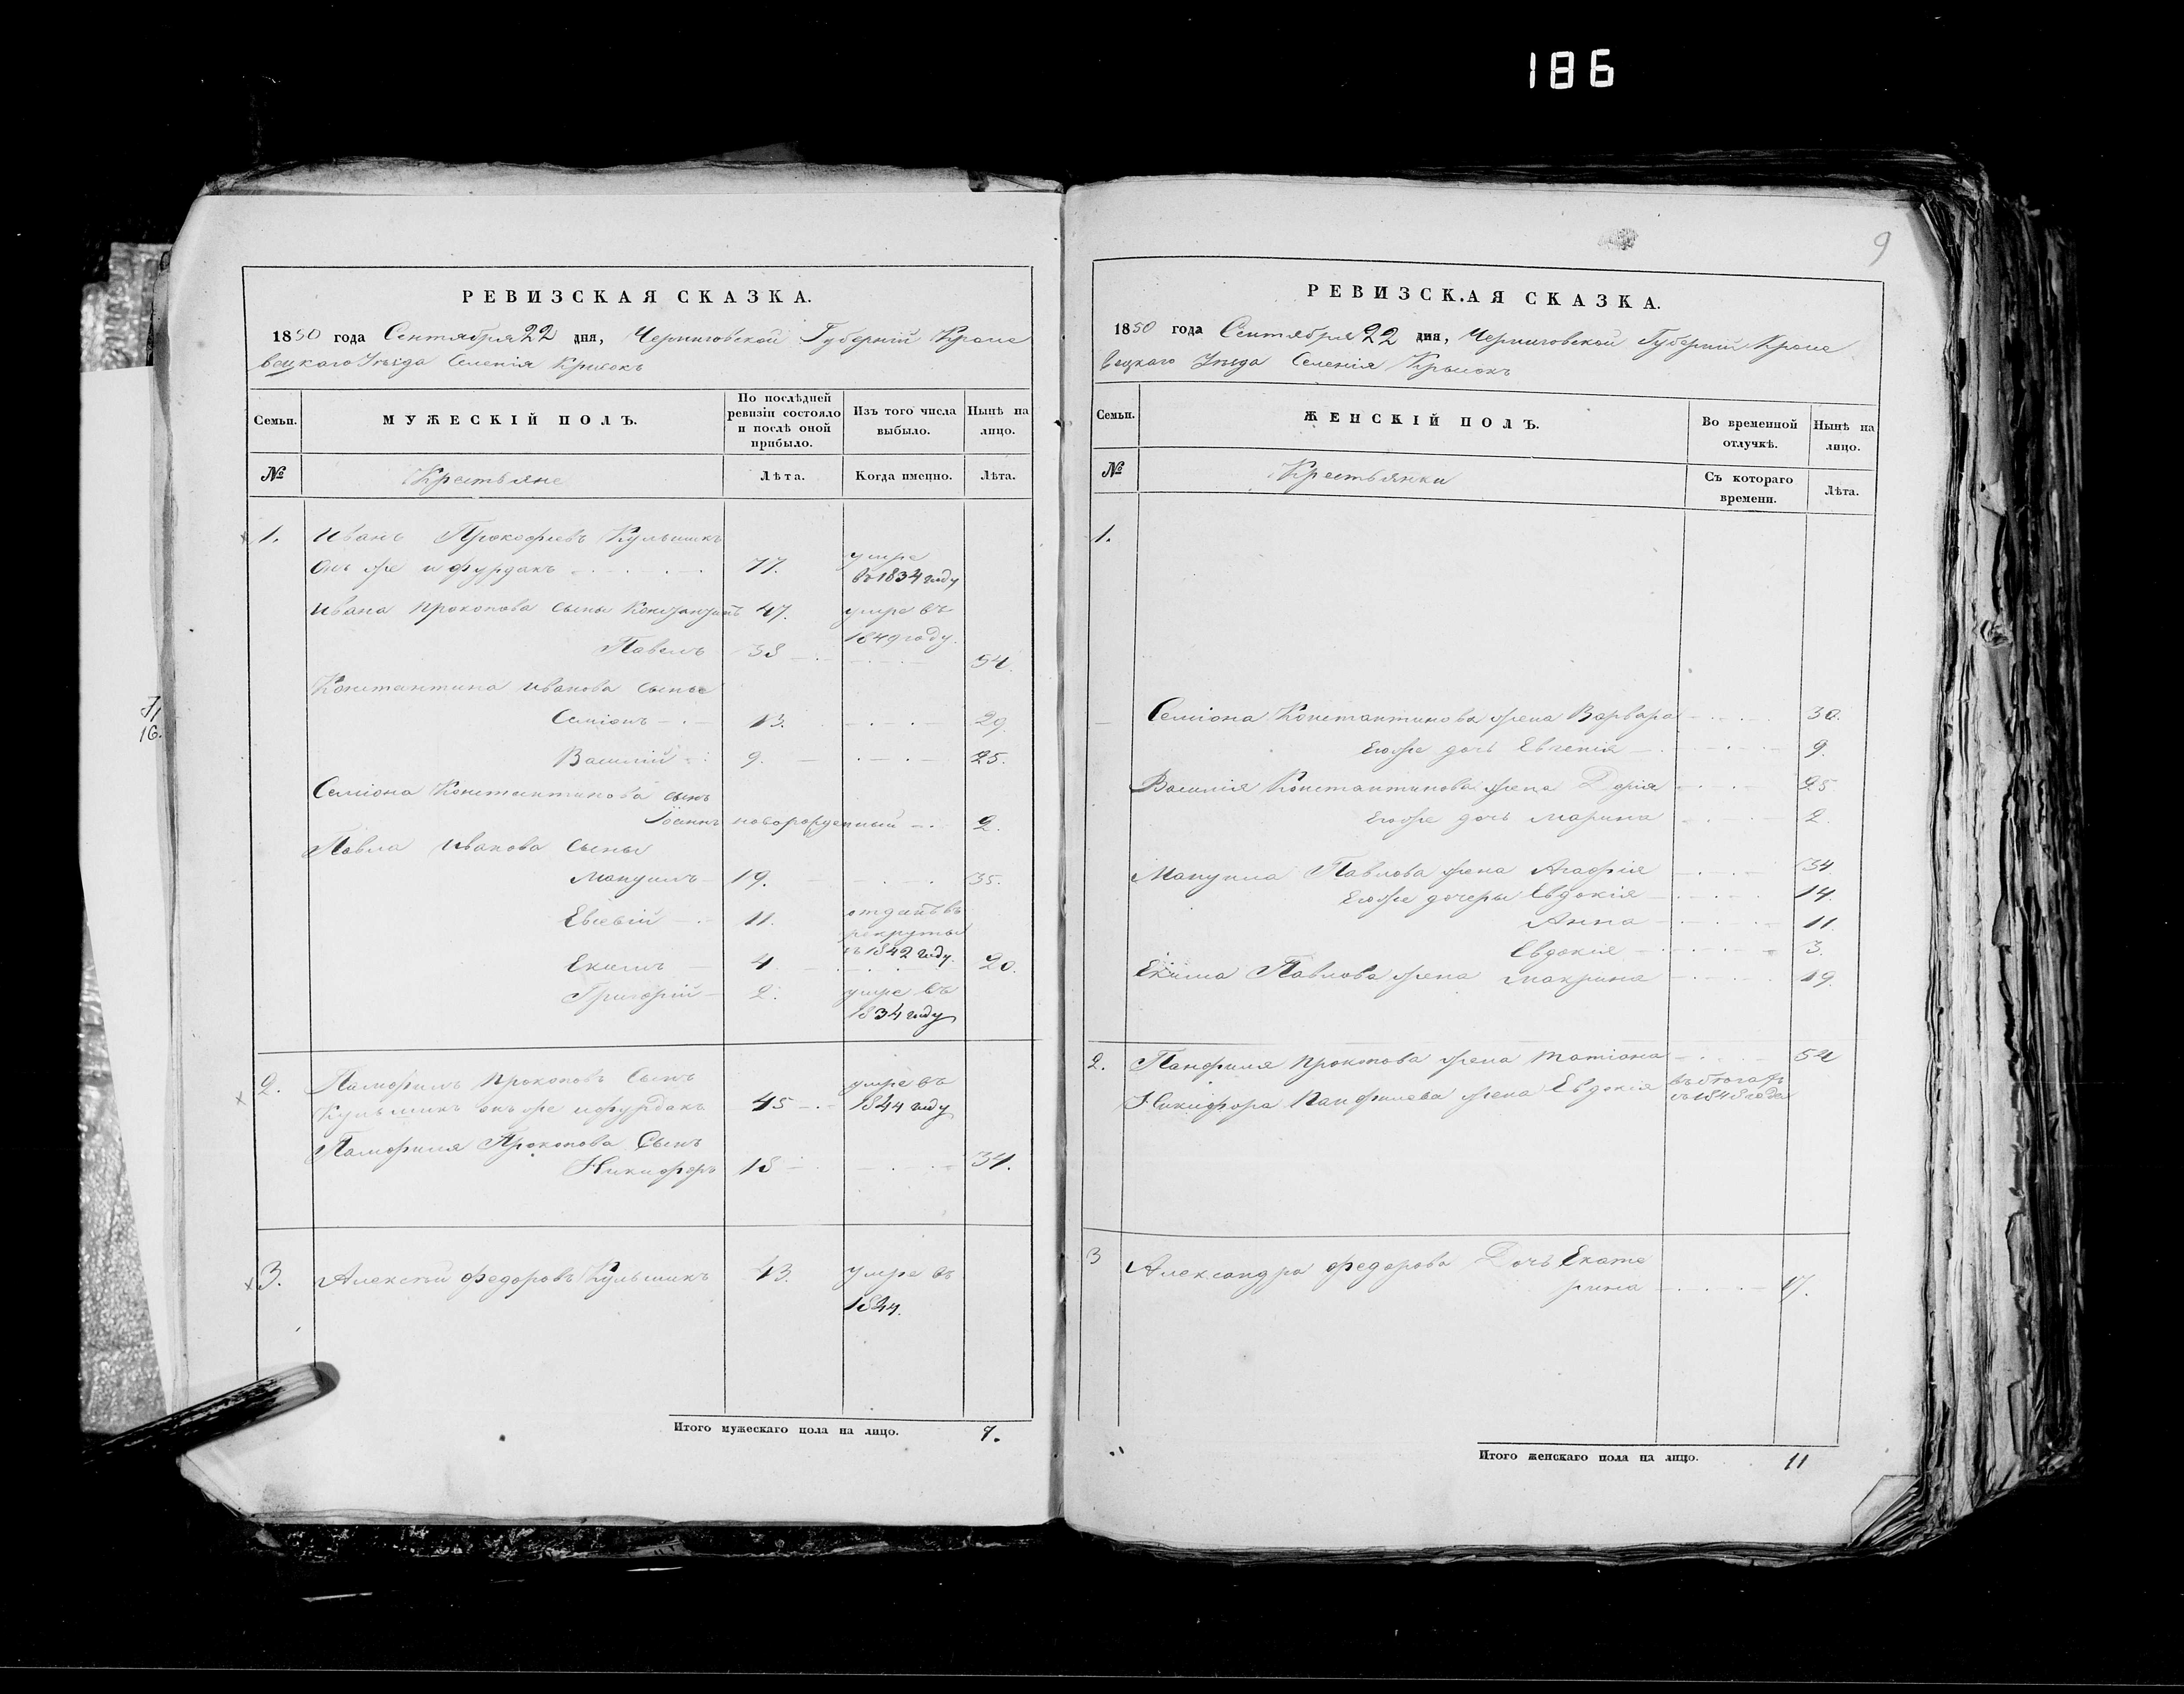 186
РЕВИЗСКАЯ СКАЗКА.
1850 года Сентября 22 дня, Черниговской Губерніи Кроле
вецкаго Уѣзда Селенія
Семьи.
МУЖЕСКІЙ ПОЛЪ.
По послѣдней ревизіи состояло и послѣ оной прибыло.
Изъ того числа выбыло.
Нынѣ на лицо.
№
Крестьяне
Лѣта.
Когда именно.
Лѣта.
1. Иванъ Прокофіевъ Кульшикъ
Онъ же и Фурдакъ 77. умре
въ 1834 году
Ивана Прокопова сыны Константинъ 47. умре въ
1849 году.
Павелъ 38 54.
Константина Иванова сыны
Семіонъ 13. 29
Василій 9. 25.
Семіона Константинова сынъ
Іоаннъ новорожденный 2.
Павла Иванова Сыны
Мануилъ 19. 35.
Евсевій 11. отданъ въ
рекруты
въ 1842 году.
Екимъ 4 20.
Григорій 2. умре въ
1834 году
2. Памфилъ Прокоповъ Сынъ умре въ
Кульшикъ онъ же и Фурдакъ 45 1844 году
Памфила Прокопова Сынъ
Никифоръ 18 34.
3. Алексѣй Федоровъ Кульшикъ 43. умре въ
1844.
Итого мужескаго пола на лицо. 7.
9
РЕВИЗСКАЯ СКАЗКА.
1850 года Сентября 22 дня, Черниговской Губерніи Кроле
вецкаго Уѣзда Селенія
Семьи.
ЖЕНСКІЙ ПОЛЪ.
Во временной отлучкѣ.
Нынѣ на лицо.
№
Крестьянки
Съ котораго времени.
Лѣта.
1.
Семіона Константинова жена Варвара 30.
Его же дочь Евгенія 9.
Василія Константинова жена Дарія 25
Его же дочь Марина 2
Мануила Павлова жена Агафія 34
Его же дочеры Евдокія 14.
Анна 11
Евдокія 3
Екима Павлова жена Макрина 19
2. Панфила Прокопова жена Татіана 54
Никифора Панфилева жена Евдокія въ бѣгахъ
съ 1848 года
3 Александра Федорова Дочь Екате
рина 17.
Итого женскаго пола на лицо. 11